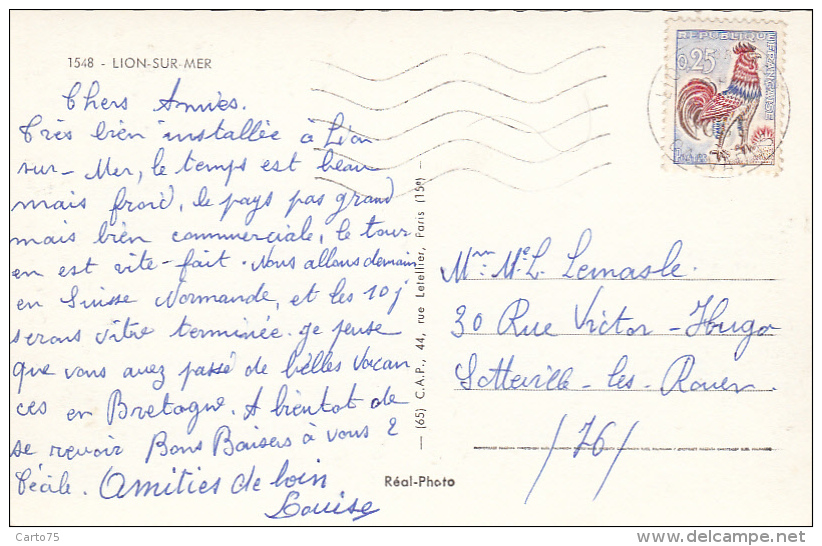 1548 - LION-SUR-MER
Chers Amies.
Très bien installée à Lion
sur-Mer, le temps est beau
mais froid, le pays pas grand
mais bien commerciale, le tour
en est vite-fait. Nous allons demain
en Suisse Normande, et les 10 j
serons vitre terminée. je pense
que vous avez passé de belles Vacan
ces en Bretagne. A bientot de
se revoir Bons Baisers à vous 2
Cécile. Amitiés de loin
Louise
(65) C.A.P., 44, rue Letellier, Paris (15e)
Réal-Photo
REPUBLIQUE FRANÇAISE
0,25
Mr. Me. L. Lemasle.
30 Rue Victor-Hugo
Sotteville-les-Rouen
/76/
Carto75
www.delcampe.net